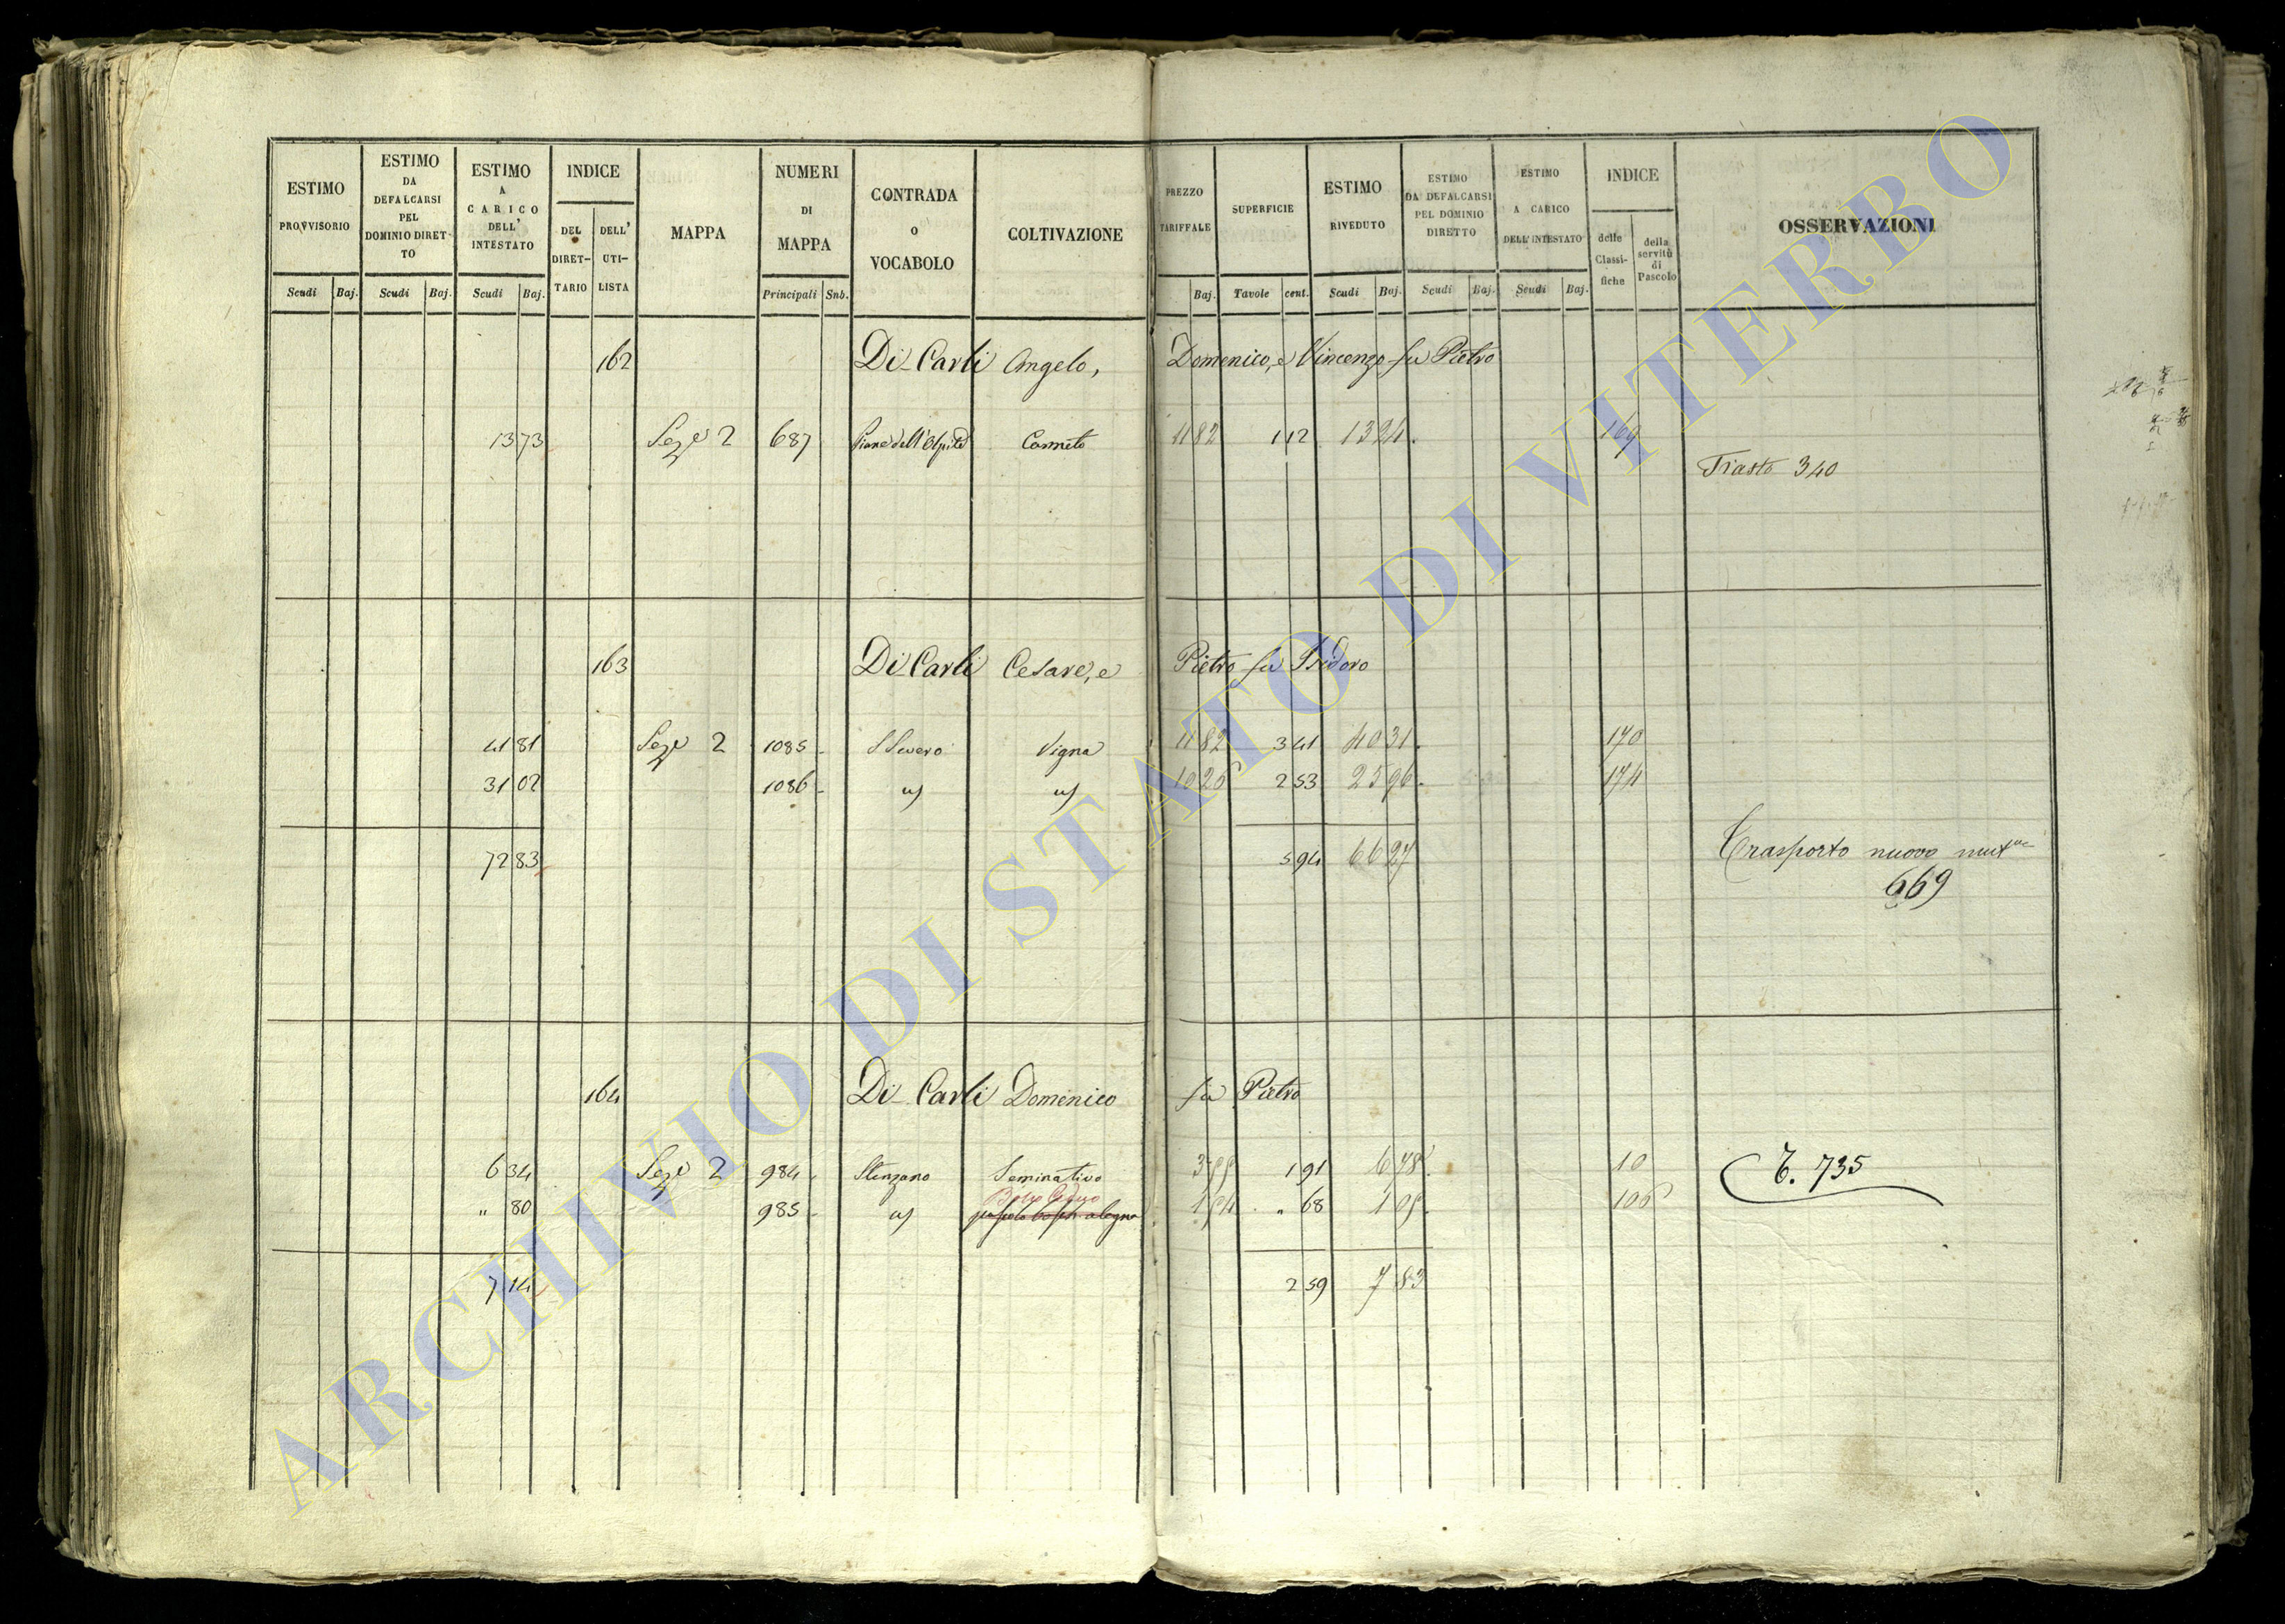 ESTIMO PROVVISORIO
ESTIMO DA DEFALCARSI PEL DOMINIO DIRET-TO
ESTIMO A CARICO DELL' INTESTATO
INDICE
DEL DIRET-TARIO
DELL' UTI-LISTA
MAPPA
NUMERI DI MAPPA
CONTRADA O VOCABOLO
COLTIVAZIONE
PREZZO TARIFFALE
SUPERFICIE
ESTIMO RIVEDUTO
ESTIMO DA DEFALCARSI PEL DOMINIO DIRETTO
ESTIMO A CARICO DELL'INTESTATO
INDICE
delle Classi-fiche
della servitù di Pascolo
OSSERVAZIONI
Scudi Baj. Scudi Baj. Scudi Baj. Principali Snb. Baj. Tavole cent. Scudi Baj. Scudi Baj. Scudi Baj.
162 Di Carli Angelo, Domenico, e Vincenzo fu Pietro
13 73 Sez.e 2 687 Canneto 11 82 1 12 13 24 169
340
163 Di Carli Cesare, e Pietro fu Isidoro
41 81 Sez.e 2 1085 S Severo Vigna 11 82 3 41 40 31 170
31 02 1086 " " 10 26 2 53 25 96 174
72 83 5 94 66 27
Trasporto nuovo
669
164 Di Carli Domenico fu Pietro
6 34 Sez.e 2 984 Stenzano Seminativo 1 91 6 78 10
" 80 985 " " 68 1 05 106
T. 735
7 14 2 59 7 83
ARCHIVIO DI STATO DI VITERBO